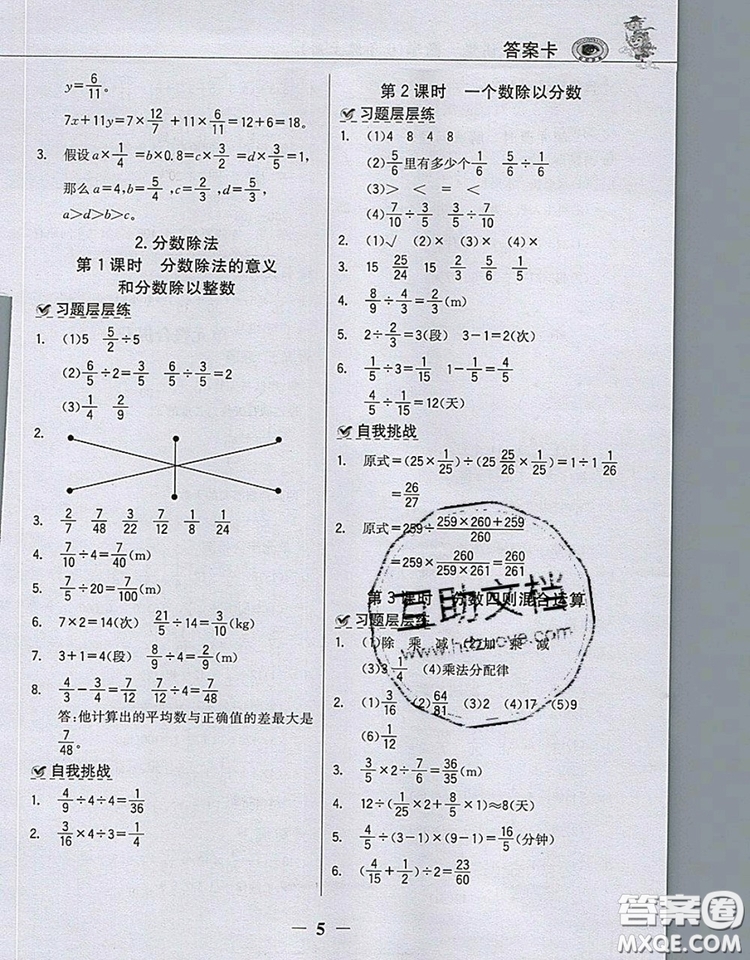 答案卡
y=6/11。
7x+11y=7×12/7+11×6/11=12+6=18。
3. 假设a×1/4=b×0.8=c×3/2=d×3/5=1,
那么a=4,b=5/4,c=2/3,d=5/3,
a>d>b>c。
2.分数除法
第1课时 分数除法的意义
和分数除以整数
习题层层练
1. (1)5 5/2÷5
(2)6/5÷2=3/5 6/5÷3/5=2
(3)1/4 2/9
2.
3. 2/7 7/48 3/22 7/12 1/8 1/24
4. 7/10÷4=7/40(m)
5. 7/5÷20=7/100(m)
6. 7×2=14(次) 21/5÷14=3/10(kg)
7. 3+1=4(段) 8/9÷4=2/9(m)
8. 4/3-3/4=7/12 7/12÷4=7/48
答:他计算出的平均数与正确值的差最大是
7/48。
自我挑战
1. 4/9÷4÷4=1/36
2. 3/16×4÷3=1/4
第2课时 一个数除以分数
习题层层练
1. (1)4 8 4 8
(2)5/6里有多少个1/6 5/6÷1/6
(3)> < = <
(4)7/10÷3/5 3/5÷7/10
2. (1)√ (2)× (3)× (4)×
3. 15 25/24 15 2/3 5/6 3/5
4. 8/9÷4/3=2/3(m)
5. 2÷2/3=3(段) 3-1=2(次)
6. 1/5÷3=1/15 1-1/5=4/5
4/5÷1/15=12(天)
自我挑战
1. 原式=(25×1/25)÷(25 25/26×1/25)=1÷1 1/26
=26/27
2. 原式=259÷(259×260+259)/260
=259×260/(259×261)=260/261
第3课时 分数四则混合运算
习题层层练
1. (1)除 乘 减 (2)加 乘 减
(3)3 1/4 (4)乘法分配律
2. (1)3/16 (2)64/81 (3)2 (4)17 (5)9
(6)1/12
3. 3/5×2÷7/6=36/35(m)
4. 12÷(1/25×2+8/5×1)≈8(天)
5. 4/5÷(3-1)×(9-1)=16/5(分钟)
6. (4/15+1/2)÷2=23/60
— 5 —
互助文档
www.hdzuoye.com
答案圈
MXQE.COM